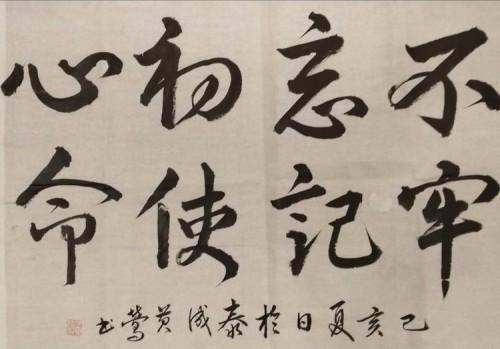 不忘初心
牢記使命
己亥夏日於泰城黄鶯书